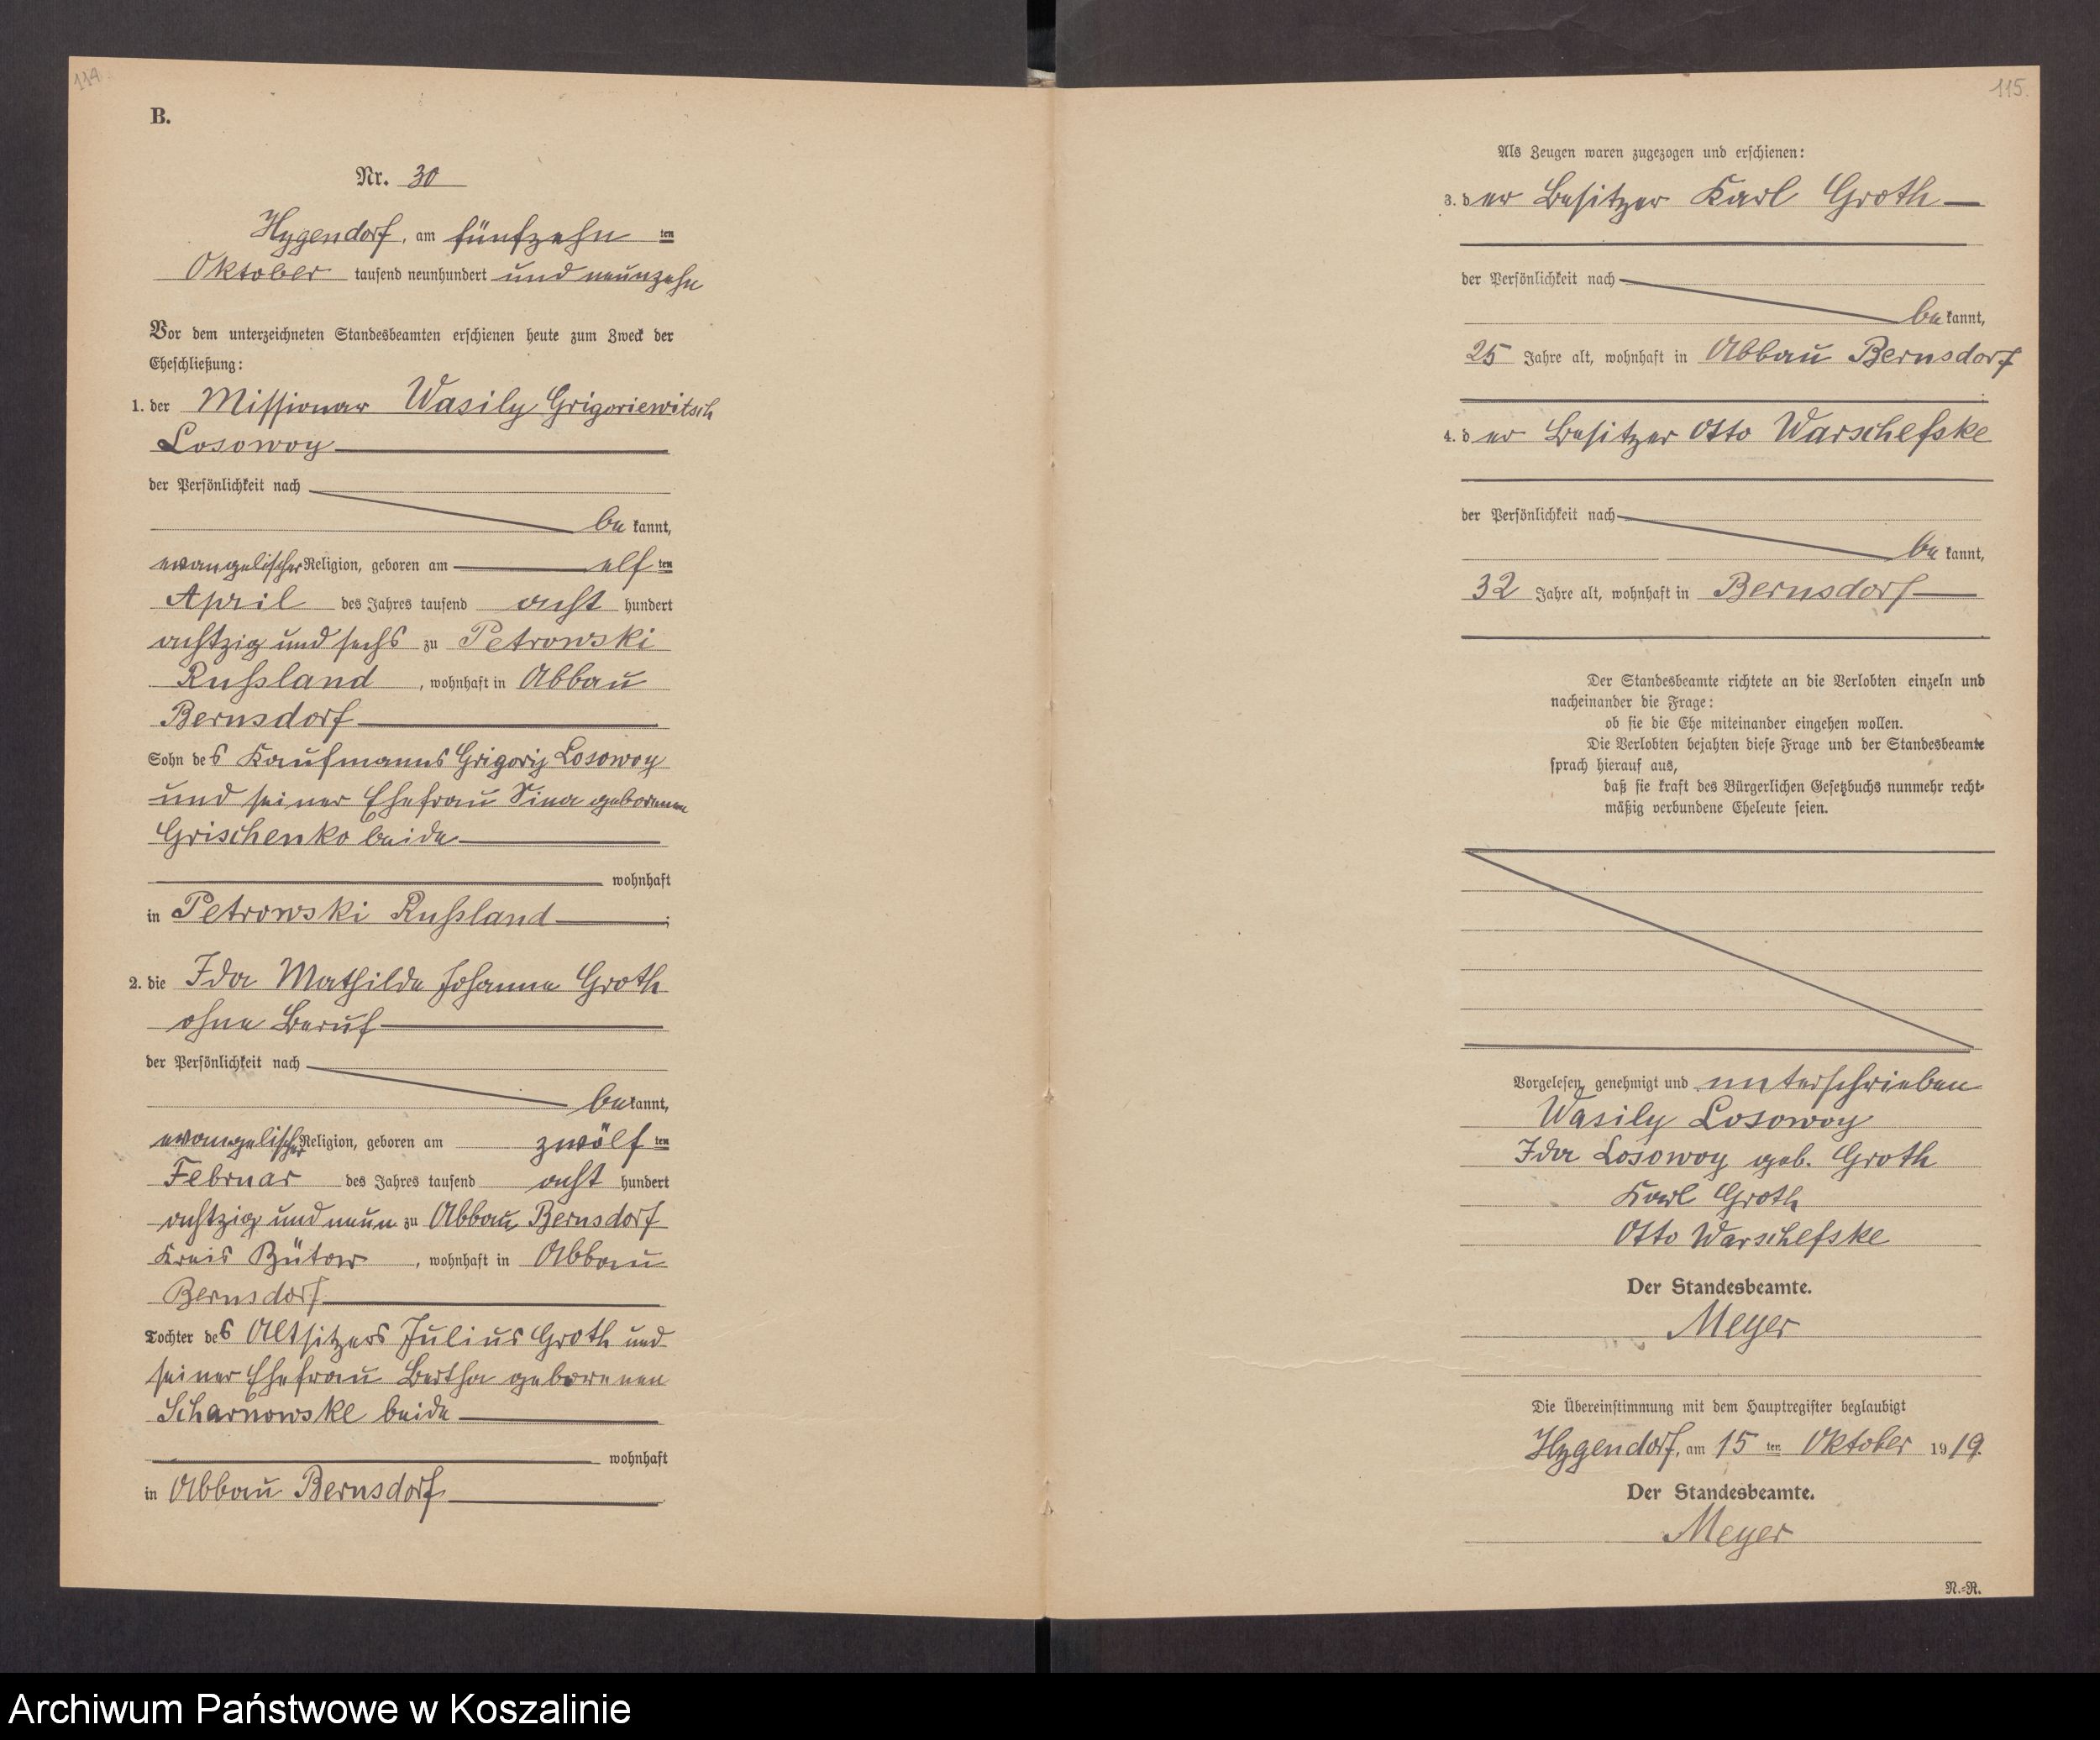 114.
B.
Nr. 30
Hygendorf, am fünfzehn ten
Oktober tausend neunhundert und neunzehn
Vor dem unterzeichneten Standesbeamten erschienen heute zum Zweck der
Eheschließung:
1. der Missionar Wasily Grigoriewitsch
Losowoy
der Persönlichkeit nach
be kannt,
evangelischer Religion, geboren am elf ten
April des Jahres tausend acht hundert
achtzig und sechs zu Petrowski
Russland, wohnhaft in Abbau
Bernsdorf
Sohn des Kaufmanns Grigorij Losowoy
und seiner Ehefrau geborenen
Grischenko beide
wohnhaft
in Petrowski Russland ;
2. die Ida Mathilde Johanne Groth
ohne Beruf
der Persönlichkeit nach
be kannt,
evangelischer Religion, geboren am zwölf ten
Februar des Jahres tausend acht hundert
achtzig und neun zu Abbau Bernsdorf
Kreis Bütow, wohnhaft in Abbau
Bernsdorf
Tochter des Altsitzers Julius Groth und
seiner Ehefrau Bertha geborenen
Scharnowske beide
wohnhaft
in Abbau Bernsdorf
115.
Als Zeugen waren zugezogen und erschienen:
3. der Besitzer Karl Groth
der Persönlichkeit nach
be kannt,
25 Jahre alt, wohnhaft in Abbau Bernsdorf
4. der Besitzer Otto Warschefske
der Persönlichkeit nach
be kannt,
32 Jahre alt, wohnhaft in Bernsdorf
Der Standesbeamte richtete an die Verlobten einzeln und
nacheinander die Frage:
ob sie die Ehe miteinander eingehen wollen.
Die Verlobten bejahten diese Frage und der Standesbeamte
sprach hierauf aus,
daß sie kraft des Bürgerlichen Gesetzbuchs nunmehr recht-
mäßig verbundene Eheleute seien.
Vorgelesen, genehmigt und unterschrieben
Wasily Losowoy
Ida Losowoy geb. Groth
Karl Groth
Otto Warschefske
Der Standesbeamte.
Meyer
Die Übereinstimmung mit dem Hauptregister beglaubigt
Hygendorf, am 15 ten Oktober 1919.
Der Standesbeamte.
Meyer
N.-R.
Archiwum Państwowe w Koszalinie